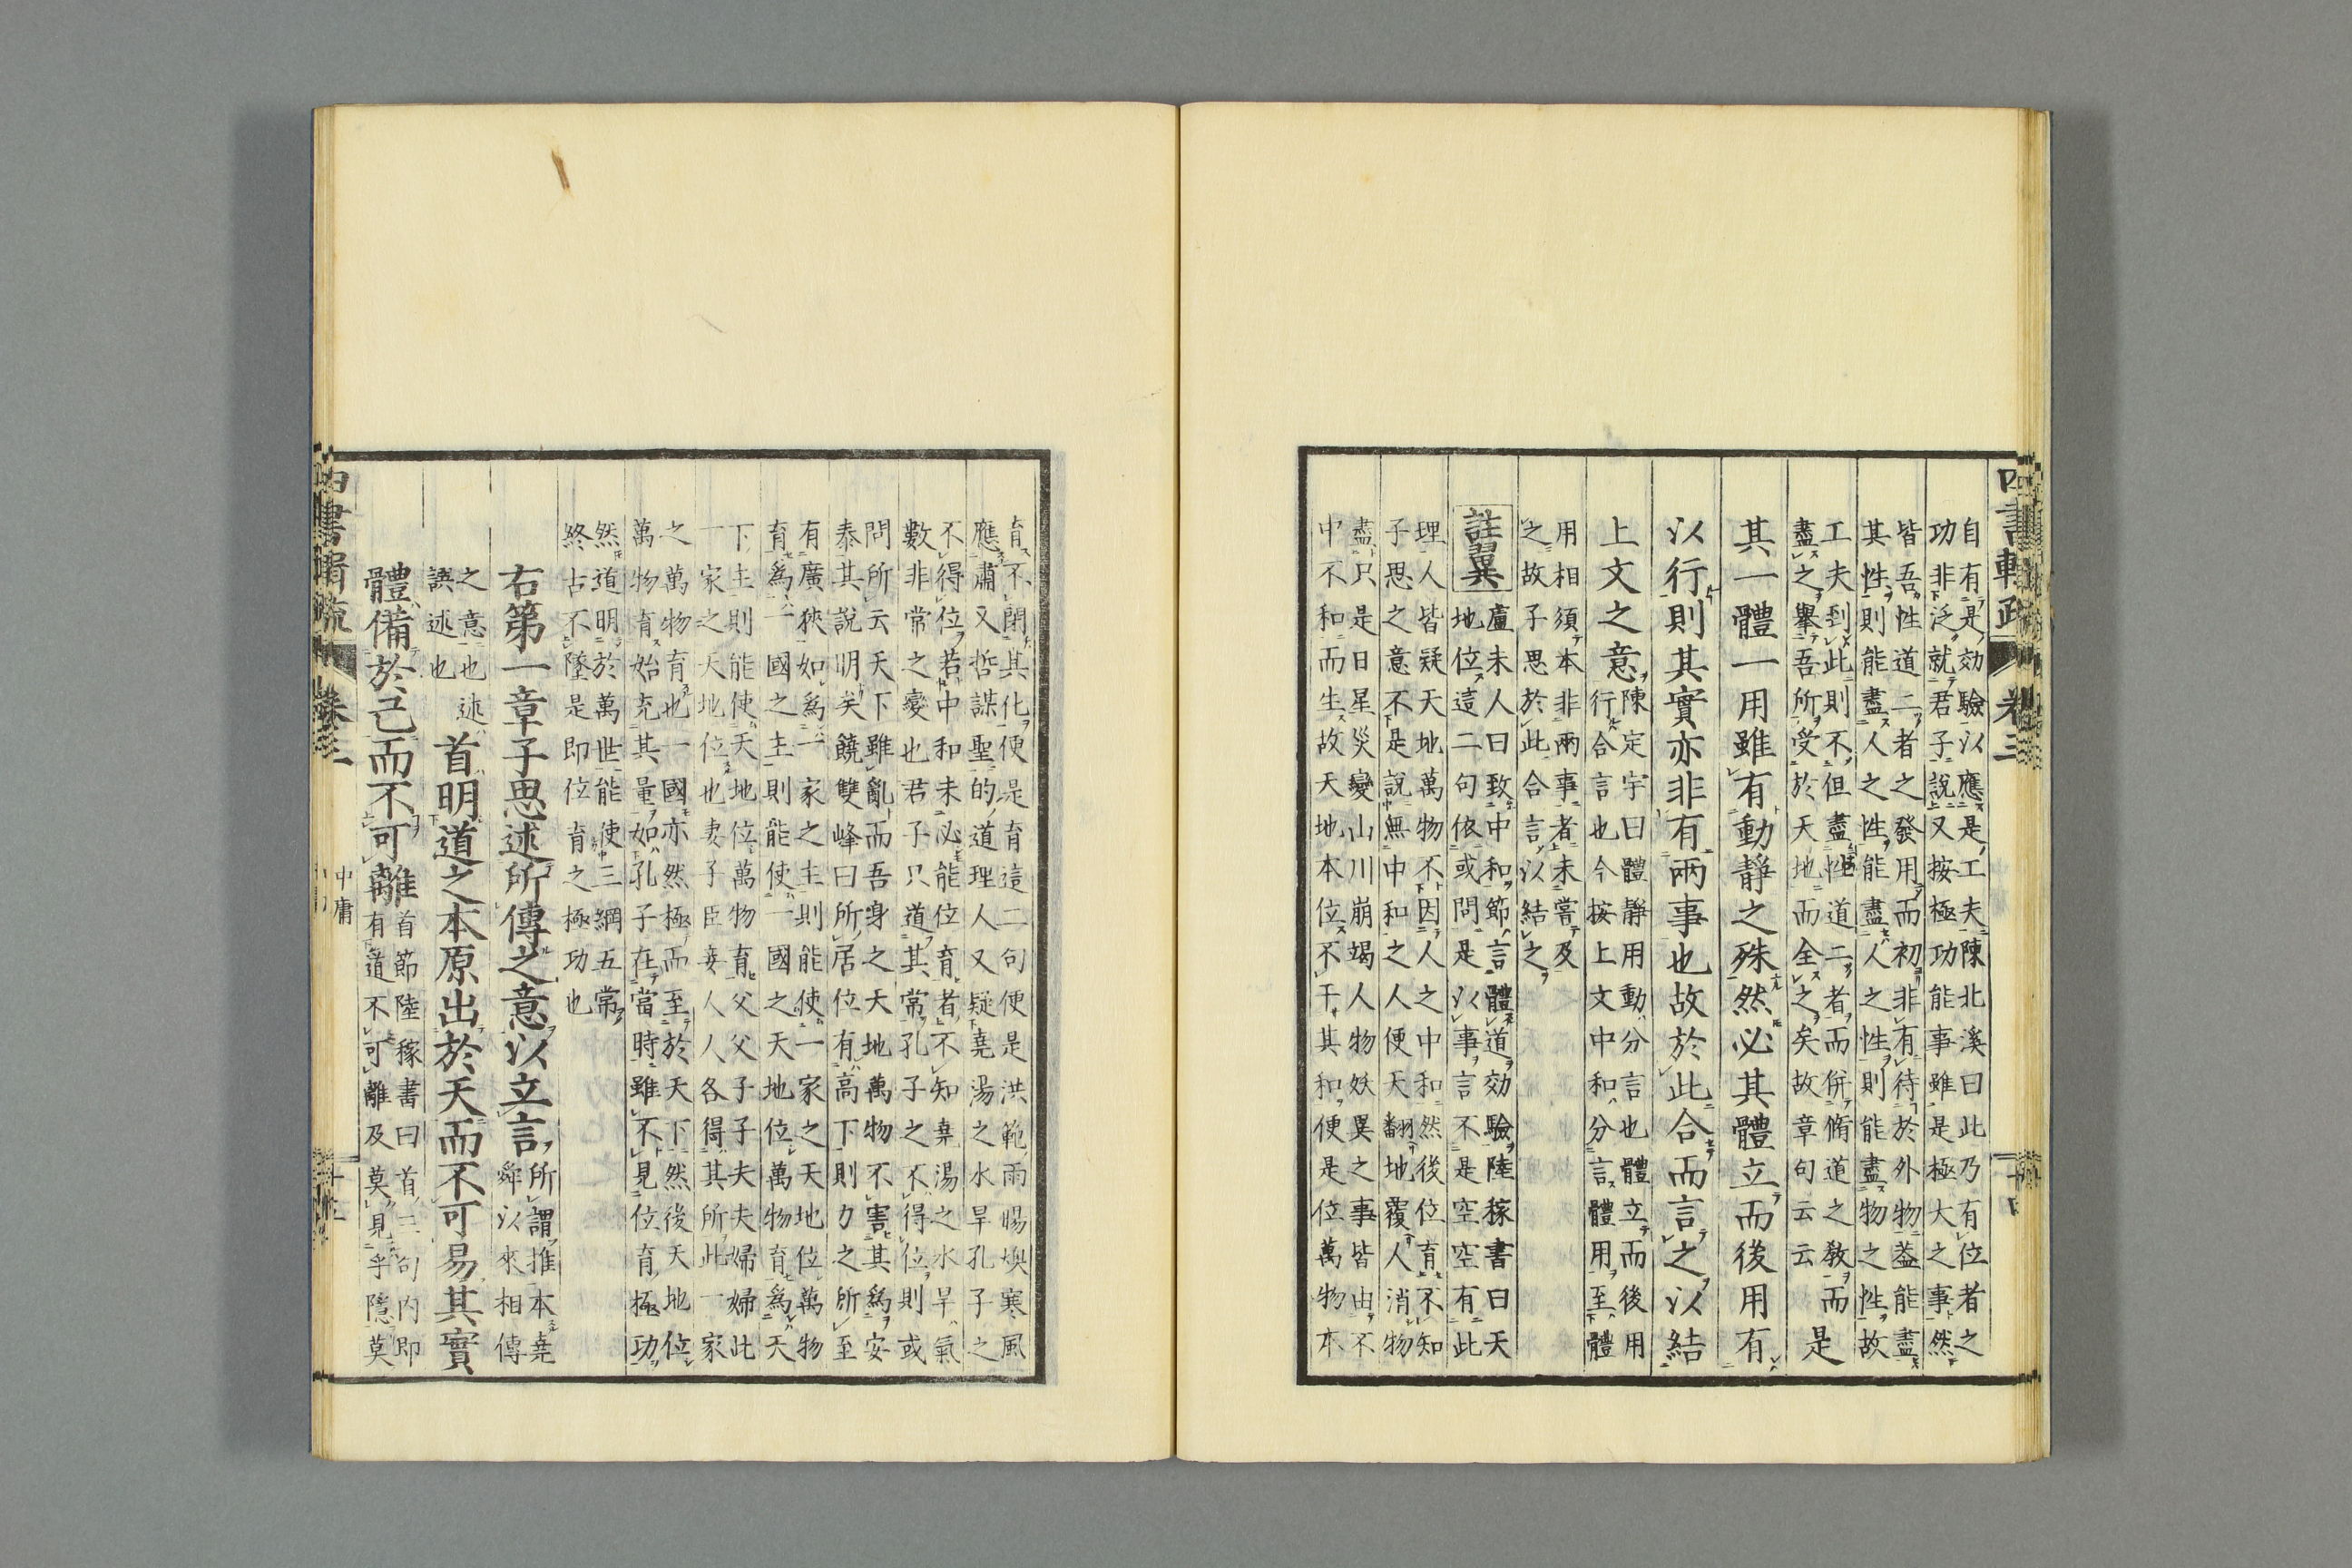 四書輯疏 卷三
自有是効驗以應是工夫陳北溪曰此乃有位者之
功非泛就君子說又按極功能事雖是極大之事然
皆吾性道二者之發用而初非有待於外物葢能盡
其性則能盡人之性能盡人之性則能盡物之性故
工夫到此則不但盡性道二者而併脩道之教而
盡之擧吾所受於天地而全之矣故章句云云
是
其一體一用雖有動靜之殊然必其體立而後用有
以行則其實亦非有兩事也故於此合而言之以結
上文之意
陳定宇曰體靜用動分言也體立而後用
行合言也今按上文中和分言體用至體
用相須本非兩事者未嘗及
之故子思於此合言以結之
註翼
盧未人曰致中和節言體道効驗陸稼書曰天
地位這二句依或問是以事言不是空空有此
理人皆疑天地萬物不因人之中和然後位育不知
子思之意不是說無中和之人便天翻地覆人消物
盡只是日星災變山川崩竭人物妖異之事皆由不
中不和而生故天地本位不干其和便是位萬物本
育不閉其化便是育這二句便是洪範雨暘燠寒風
應肅乂哲謀聖的道理人又疑堯湯之水旱孔子之
不得位若中和未必能位育者不知堯湯之水旱氣
數非常之變也君子只道其常孔子之不得位則或
問所云天下雖亂而吾身之天地萬物不害其爲安
泰其說明矣饒雙峰曰所居位有高下則力之所至
有廣狹如爲一家之主則能使一家之天地位萬物
育爲一國之主則能使一國之天地位萬物育爲天
下主則能使天地位萬物育父父子子夫夫婦婦此
一家之天地位也妻子臣妾人人各得其所此一家
之萬物育也一國亦然極而至於天下然後天地位
萬物育始充其量如孔子在當時雖不見位育極功
然道明於萬世能使三綱五常
終古不墜是即位育之極功也
右第一章子思述所傳之意以立言
所謂推本堯
舜以來相傳
之意也述
語述也
首明道之本原出於天而不可易其實
體備於己而不可離
首節陸稼書曰首三句内即
有道不可離及莫見乎隱莫
四書輯疏 卷三
中庸